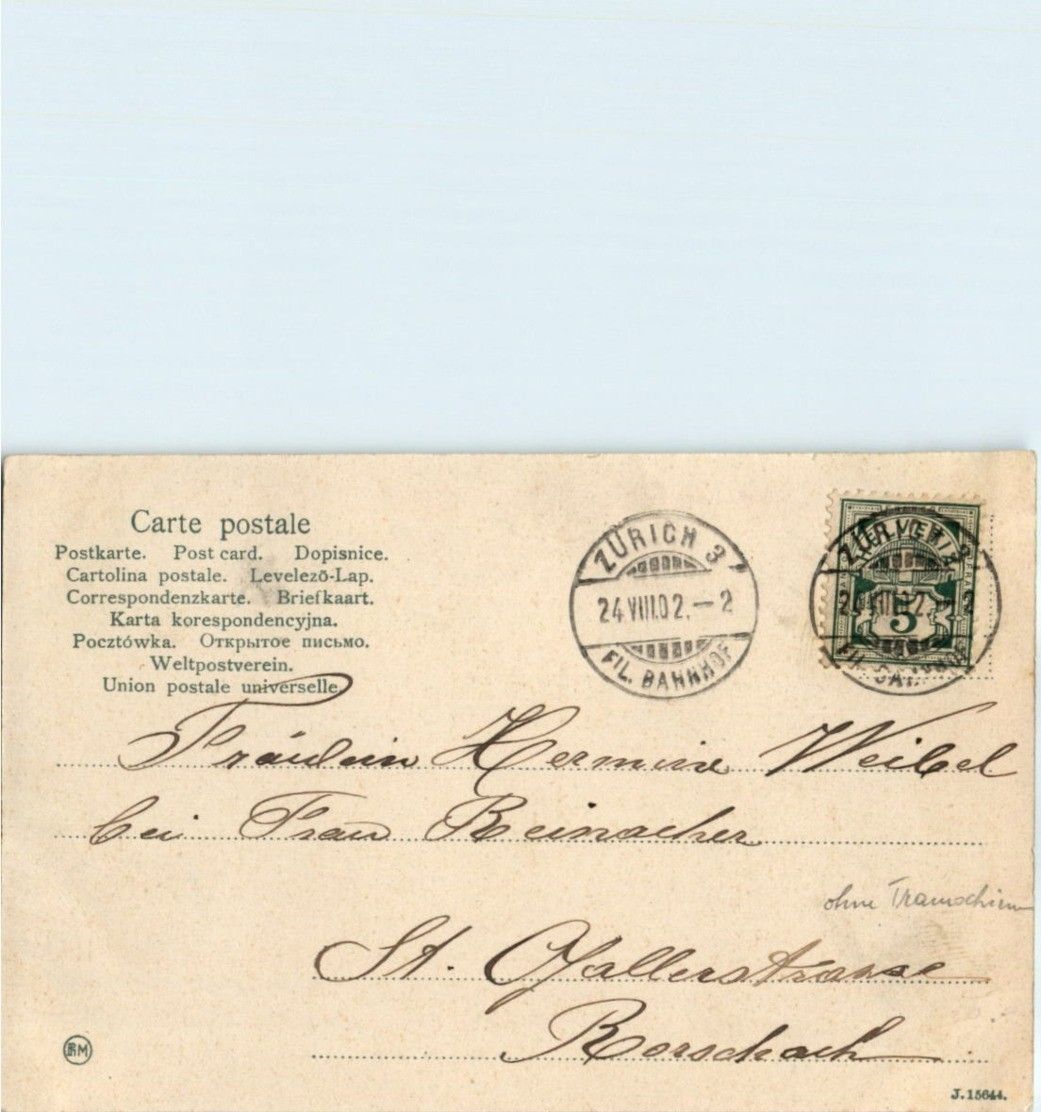 Carte postale
Postkarte. Post card. Dopisnice.
Cartolina postale. Levelező-Lap.
Correspondenzkarte. Briefkaart.
Karta korespondencyjna.
Pocztówka. Открытое письмо.
Weltpostverein.
Union postale universelle.
ZÜRICH 3
24.VIII.02.-2
FIL. BAHNHOF
HELVETIA
5
Fräulein Hermine Weibel
bei Frau Reinacher
ohne Tramschirm
St. Gallerstrasse
Rorschach
RM
J.15644.